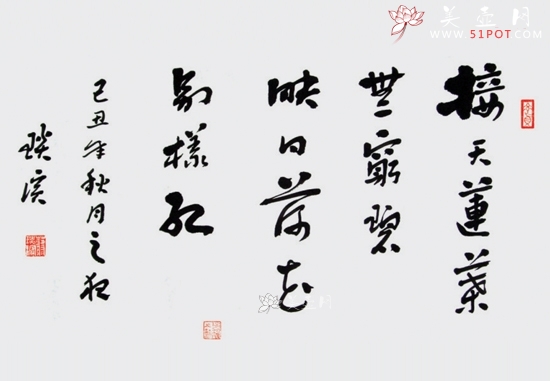 美壶网
www.51POT.com
接天蓮葉
無窮碧
映日荷花
別樣紅
己丑年秋月之夜